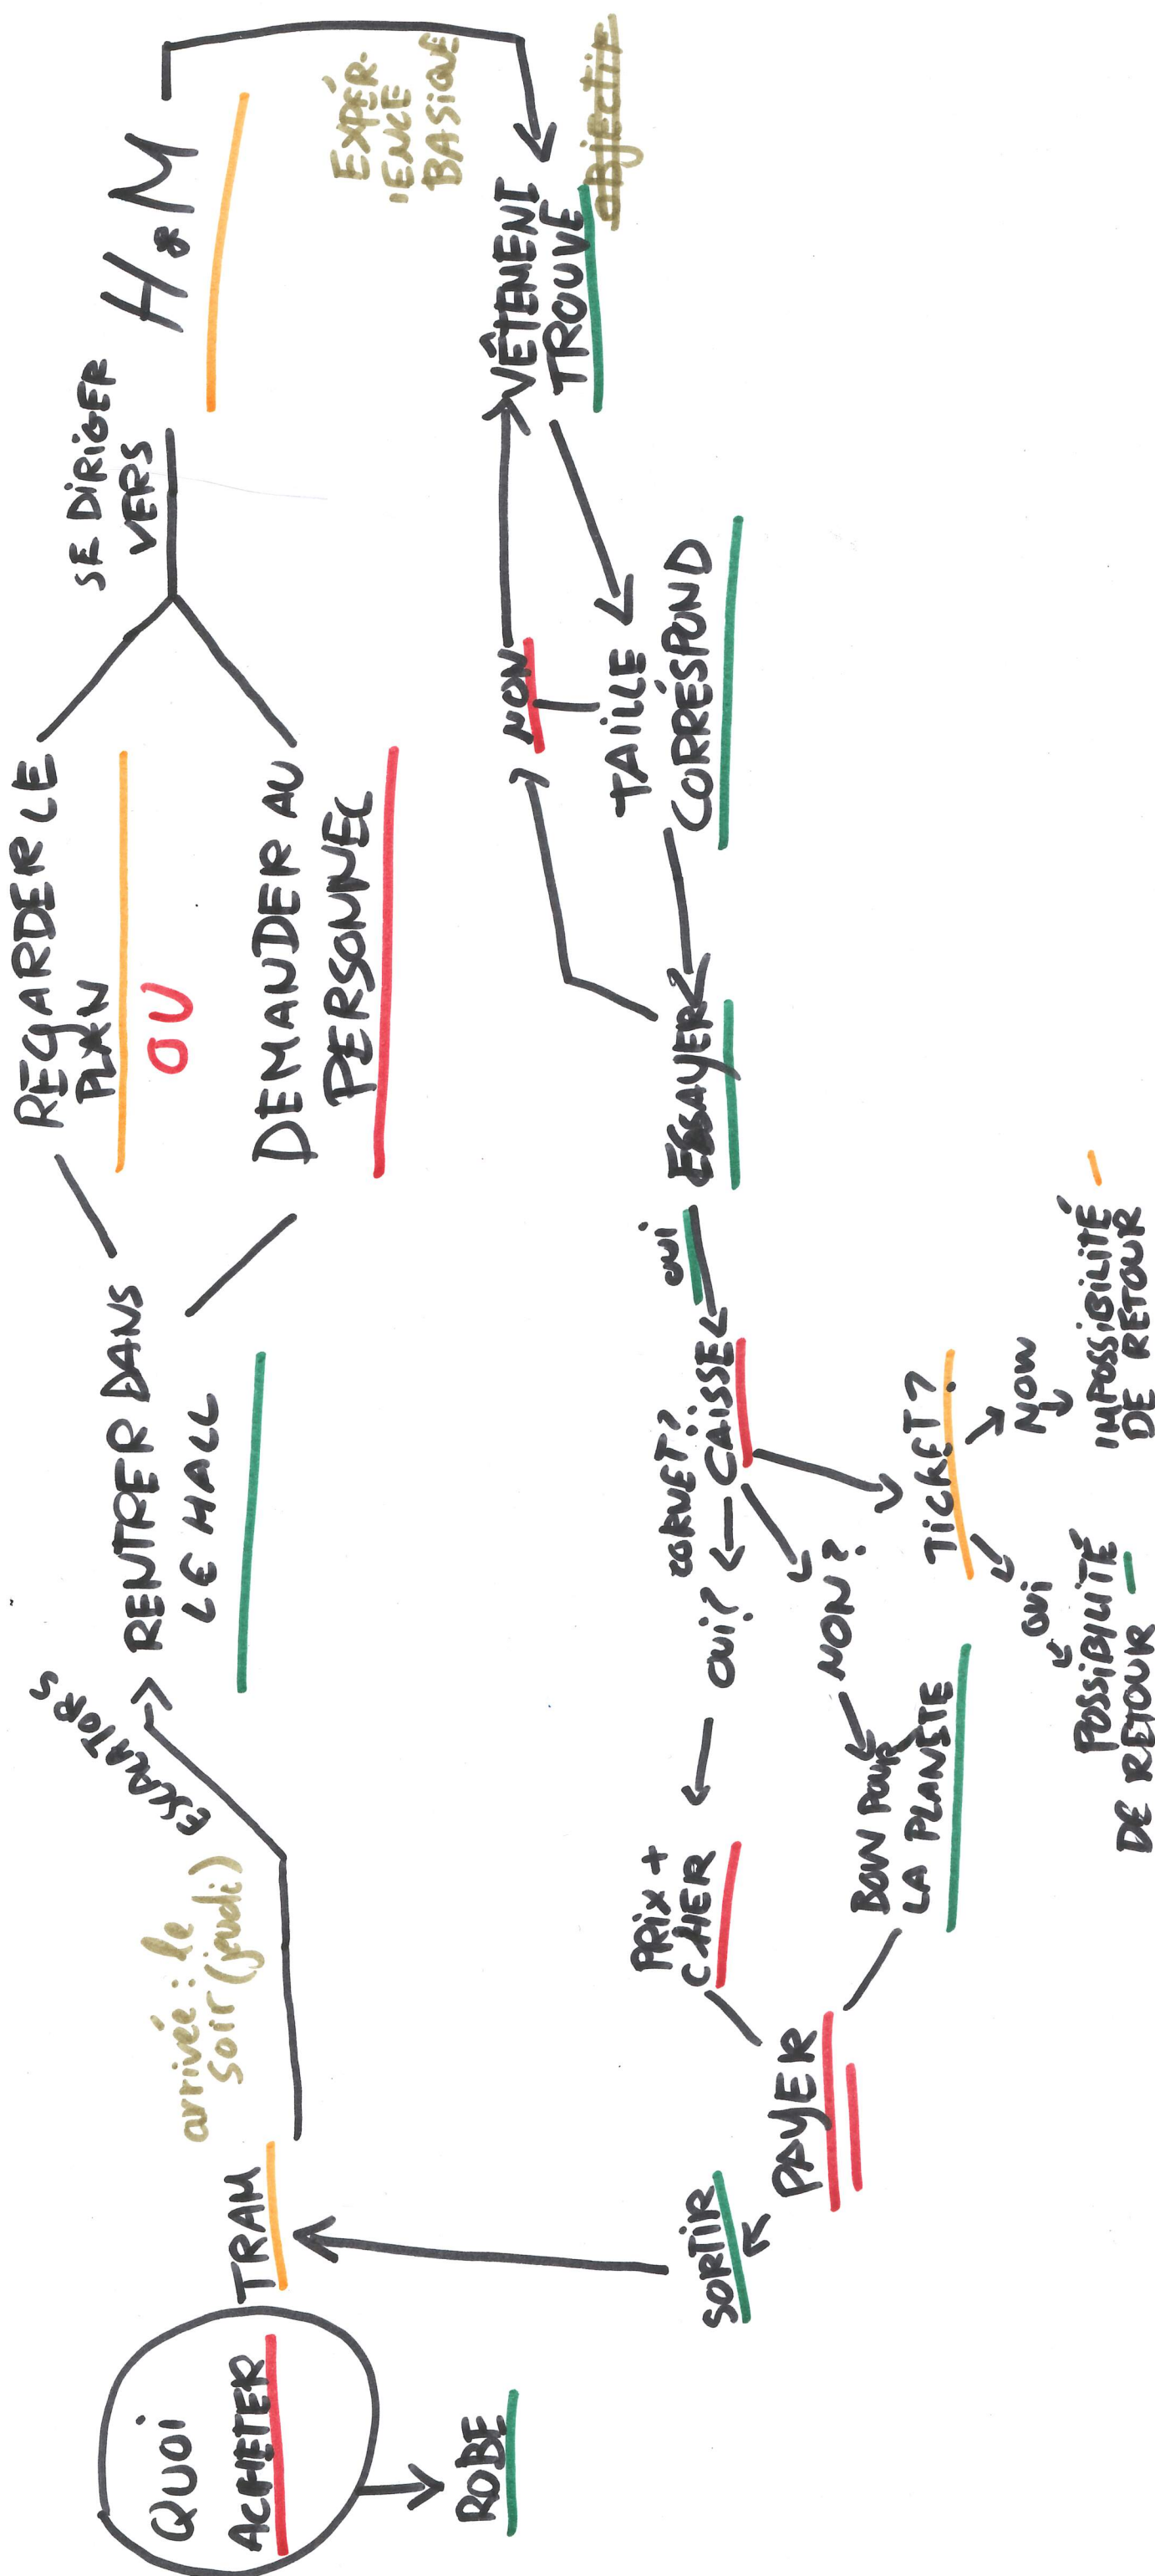 QUOI
ACHETER
ROBE
TRAM
arrivée : le
soir (jeudi)
ESCALATORS
RENTRER DANS
LE HALL
REGARDER LE
PLAN
OU
DEMANDER AU
PERSONNEL
SE DIRIGER
VERS
H&M
EXPÉR-
IENCE
BASIQUE
objectif
VÊTEMENT
TROUVÉ
NON
TAILLE
CORRÉSPOND
ESSAYER
OUI
CAISSE
CORNET?
OUI?
NON?
PRIX +
CHER
BON POUR
LA PLANÈTE
TICKET?
NON
IMPOSSIBILITÉ
DE RETOUR
OUI
POSSIBILITÉ
DE RETOUR
PAYER
SORTIR